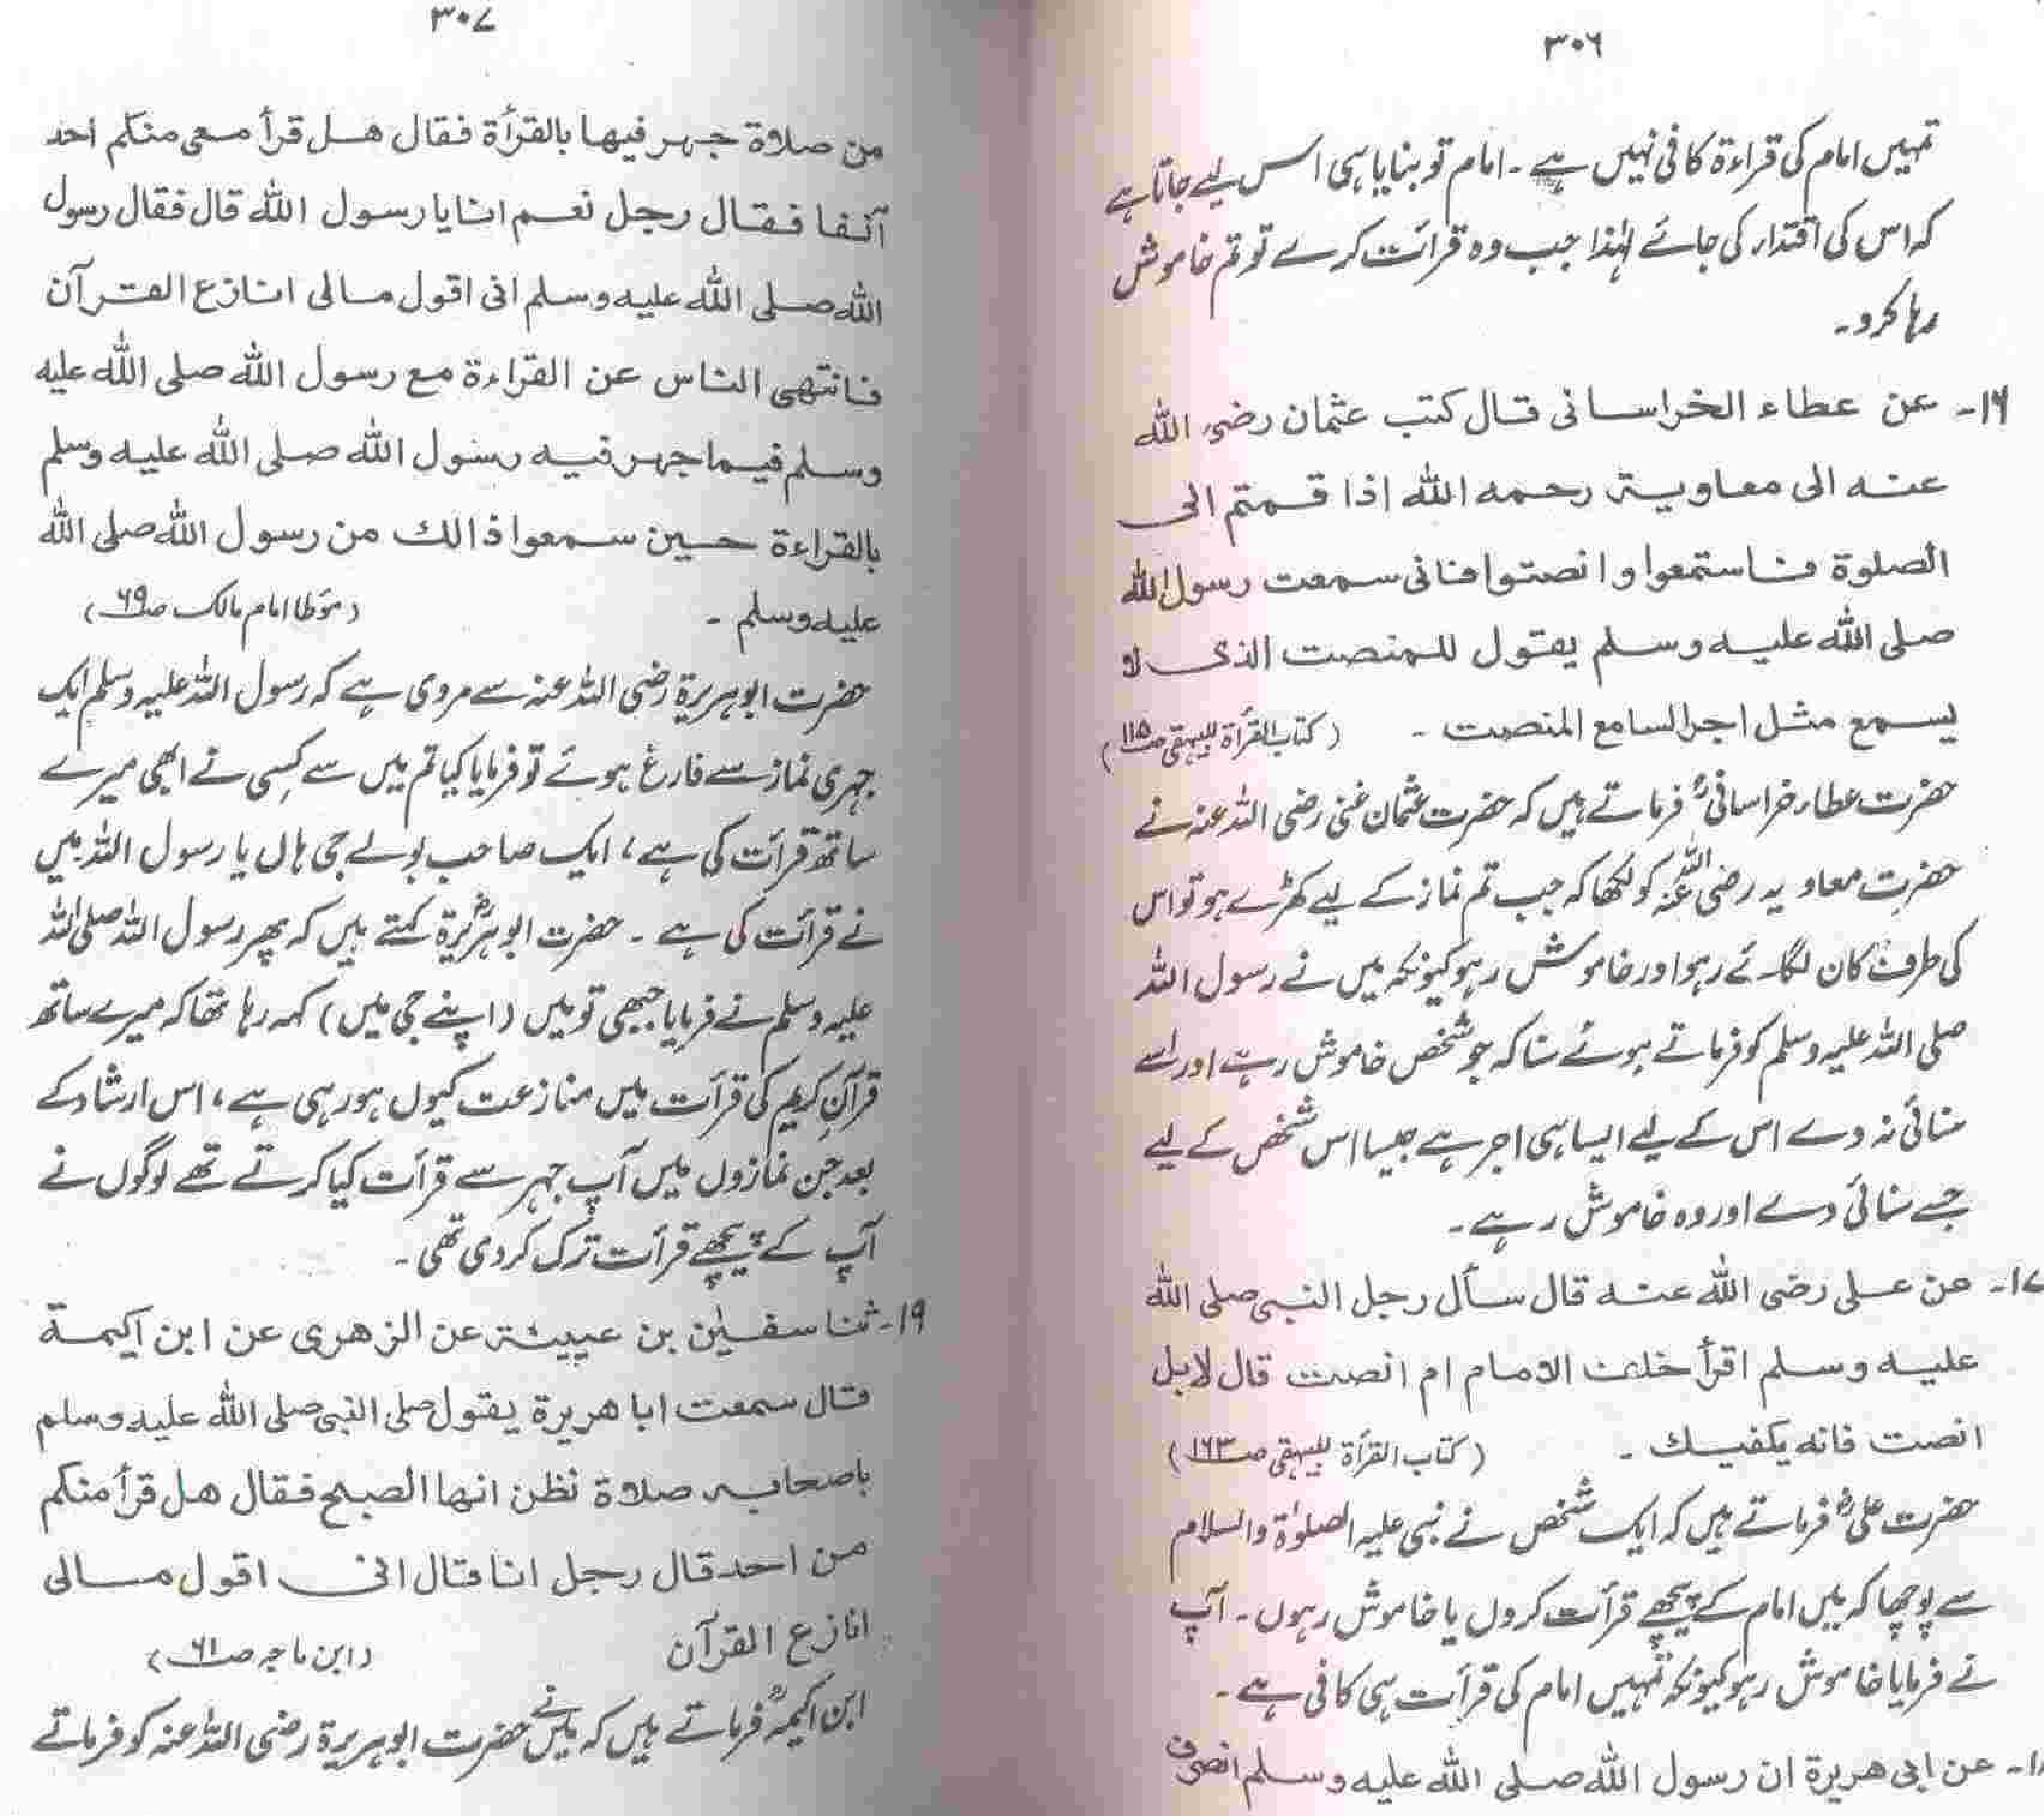 ۳۰۶
تمہیں امام کی قراءۃ کافی نہیں ہے ۔ امام تو بنایا ہی اس لیے جاتا ہے
کہ اس کی اقتداء کی جائے لہٰذا جب وہ قرأت کرے تو تم خاموش
رہا کرو ۔
۱۶- عن عطاء الخراسانی قال کتب عثمان رضی اللہ
عنه الی معاویة رحمه اللہ اذا قمتم الی
الصلوة فاستمعوا وانصتوا فانی سمعت رسول اللہ
صلی اللہ علیه وسلم یقول للمنصت الذی لا
یسمع مثل اجر السامع المنصت ۔ (کتاب القرأة للبیہقی ص۱۱۵)
حضرت عطاء خراسانیؒ فرماتے ہیں کہ حضرت عثمان غنی رضی اللہ عنہ نے
حضرت معاویہ رضی اللہ عنہ کو لکھا کہ جب تم نماز کے لیے کھڑے ہو تو اس
کی طرف کان لگائے رہو اور خاموش رہو کیونکہ میں نے رسول اللہ
صلی اللہ علیہ وسلم کو فرماتے ہوئے سنا کہ جو شخص خاموش رہے اور اسے
سنائی نہ دے اس کے لیے ایسا ہی اجر ہے جیسا اس شخص کے لیے
جسے سنائی دے اور وہ خاموش رہے ۔
۱۷- عن علی رضی اللہ عنه قال سأل رجل النبی صلی اللہ
علیه وسلم اقرأ خلف الامام ام انصت قال لابل
انصت فانه یکفیك ۔ (کتاب القرأة للبیہقی ص۱۶۳)
حضرت علیؓ فرماتے ہیں کہ ایک شخص نے نبی علیہ الصلوٰۃ والسلام
سے پوچھا کہ میں امام کے پیچھے قرأت کروں یا خاموش رہوں ۔ آپ
نے فرمایا خاموش رہو کیونکہ تمہیں امام کی قرأت ہی کافی ہے ۔
۱۸- عن ابی هریرة ان رسول اللہ صلی اللہ علیه وسلم انصرف
۳۰۷
من صلاة جهر فیها بالقرأة فقال هل قرأ معی منکم احد
آنفا فقال رجل نعم انا یا رسول اللہ قال فقال رسول
اللہ صلی اللہ علیه وسلم انی اقول مالی انازع القرآن
فانتهی الناس عن القراءة مع رسول اللہ صلی اللہ علیه
وسلم فیما جهر فیه رسول اللہ صلی اللہ علیه وسلم
بالقراءة حسین سمعوا ذالك من رسول اللہ صلی اللہ
علیه وسلم ۔ (مؤطا امام مالک ص۶۹)
حضرت ابوہریرۃ رضی اللہ عنہ سے مروی ہے کہ رسول اللہ علیہ وسلم ایک
جہری نماز سے فارغ ہوئے تو فرمایا کیا تم میں سے کسی نے ابھی میرے
ساتھ قرأت کی ہے ، ایک صاحب بولے جی ہاں یا رسول اللہ میں
نے قرأت کی ہے ۔ حضرت ابوہریرۃؓ کہتے ہیں کہ پھر رسول اللہ صلی اللہ
علیہ وسلم نے فرمایا جبھی تو میں (اپنے جی میں) کہہ رہا تھا کہ میرے ساتھ
قرآنِ کریم کی قرأت میں منازعت کیوں ہو رہی ہے ، اس ارشاد کے
بعد جن نمازوں میں آپ جہر سے قرأت کیا کرتے تھے لوگوں نے
آپ کے پیچھے قرأت ترک کر دی تھی ۔
۱۹- ثنا سفیٰن بن عیینة عن الزهری عن ابن اکیمة
قال سمعت ابا هریرة یقول صلی النبی صلی اللہ علیه وسلم
باصحابه صلاة نظن انها الصبح فقال هل قرأ منکم
من احد قال رجل انا قال انی اقول مالی
انازع القرآن (ابن ماجہ ص۶۱)
ابن اکیمہؒ فرماتے ہیں کہ میں نے حضرت ابوہریرۃ رضی اللہ عنہ کو فرماتے